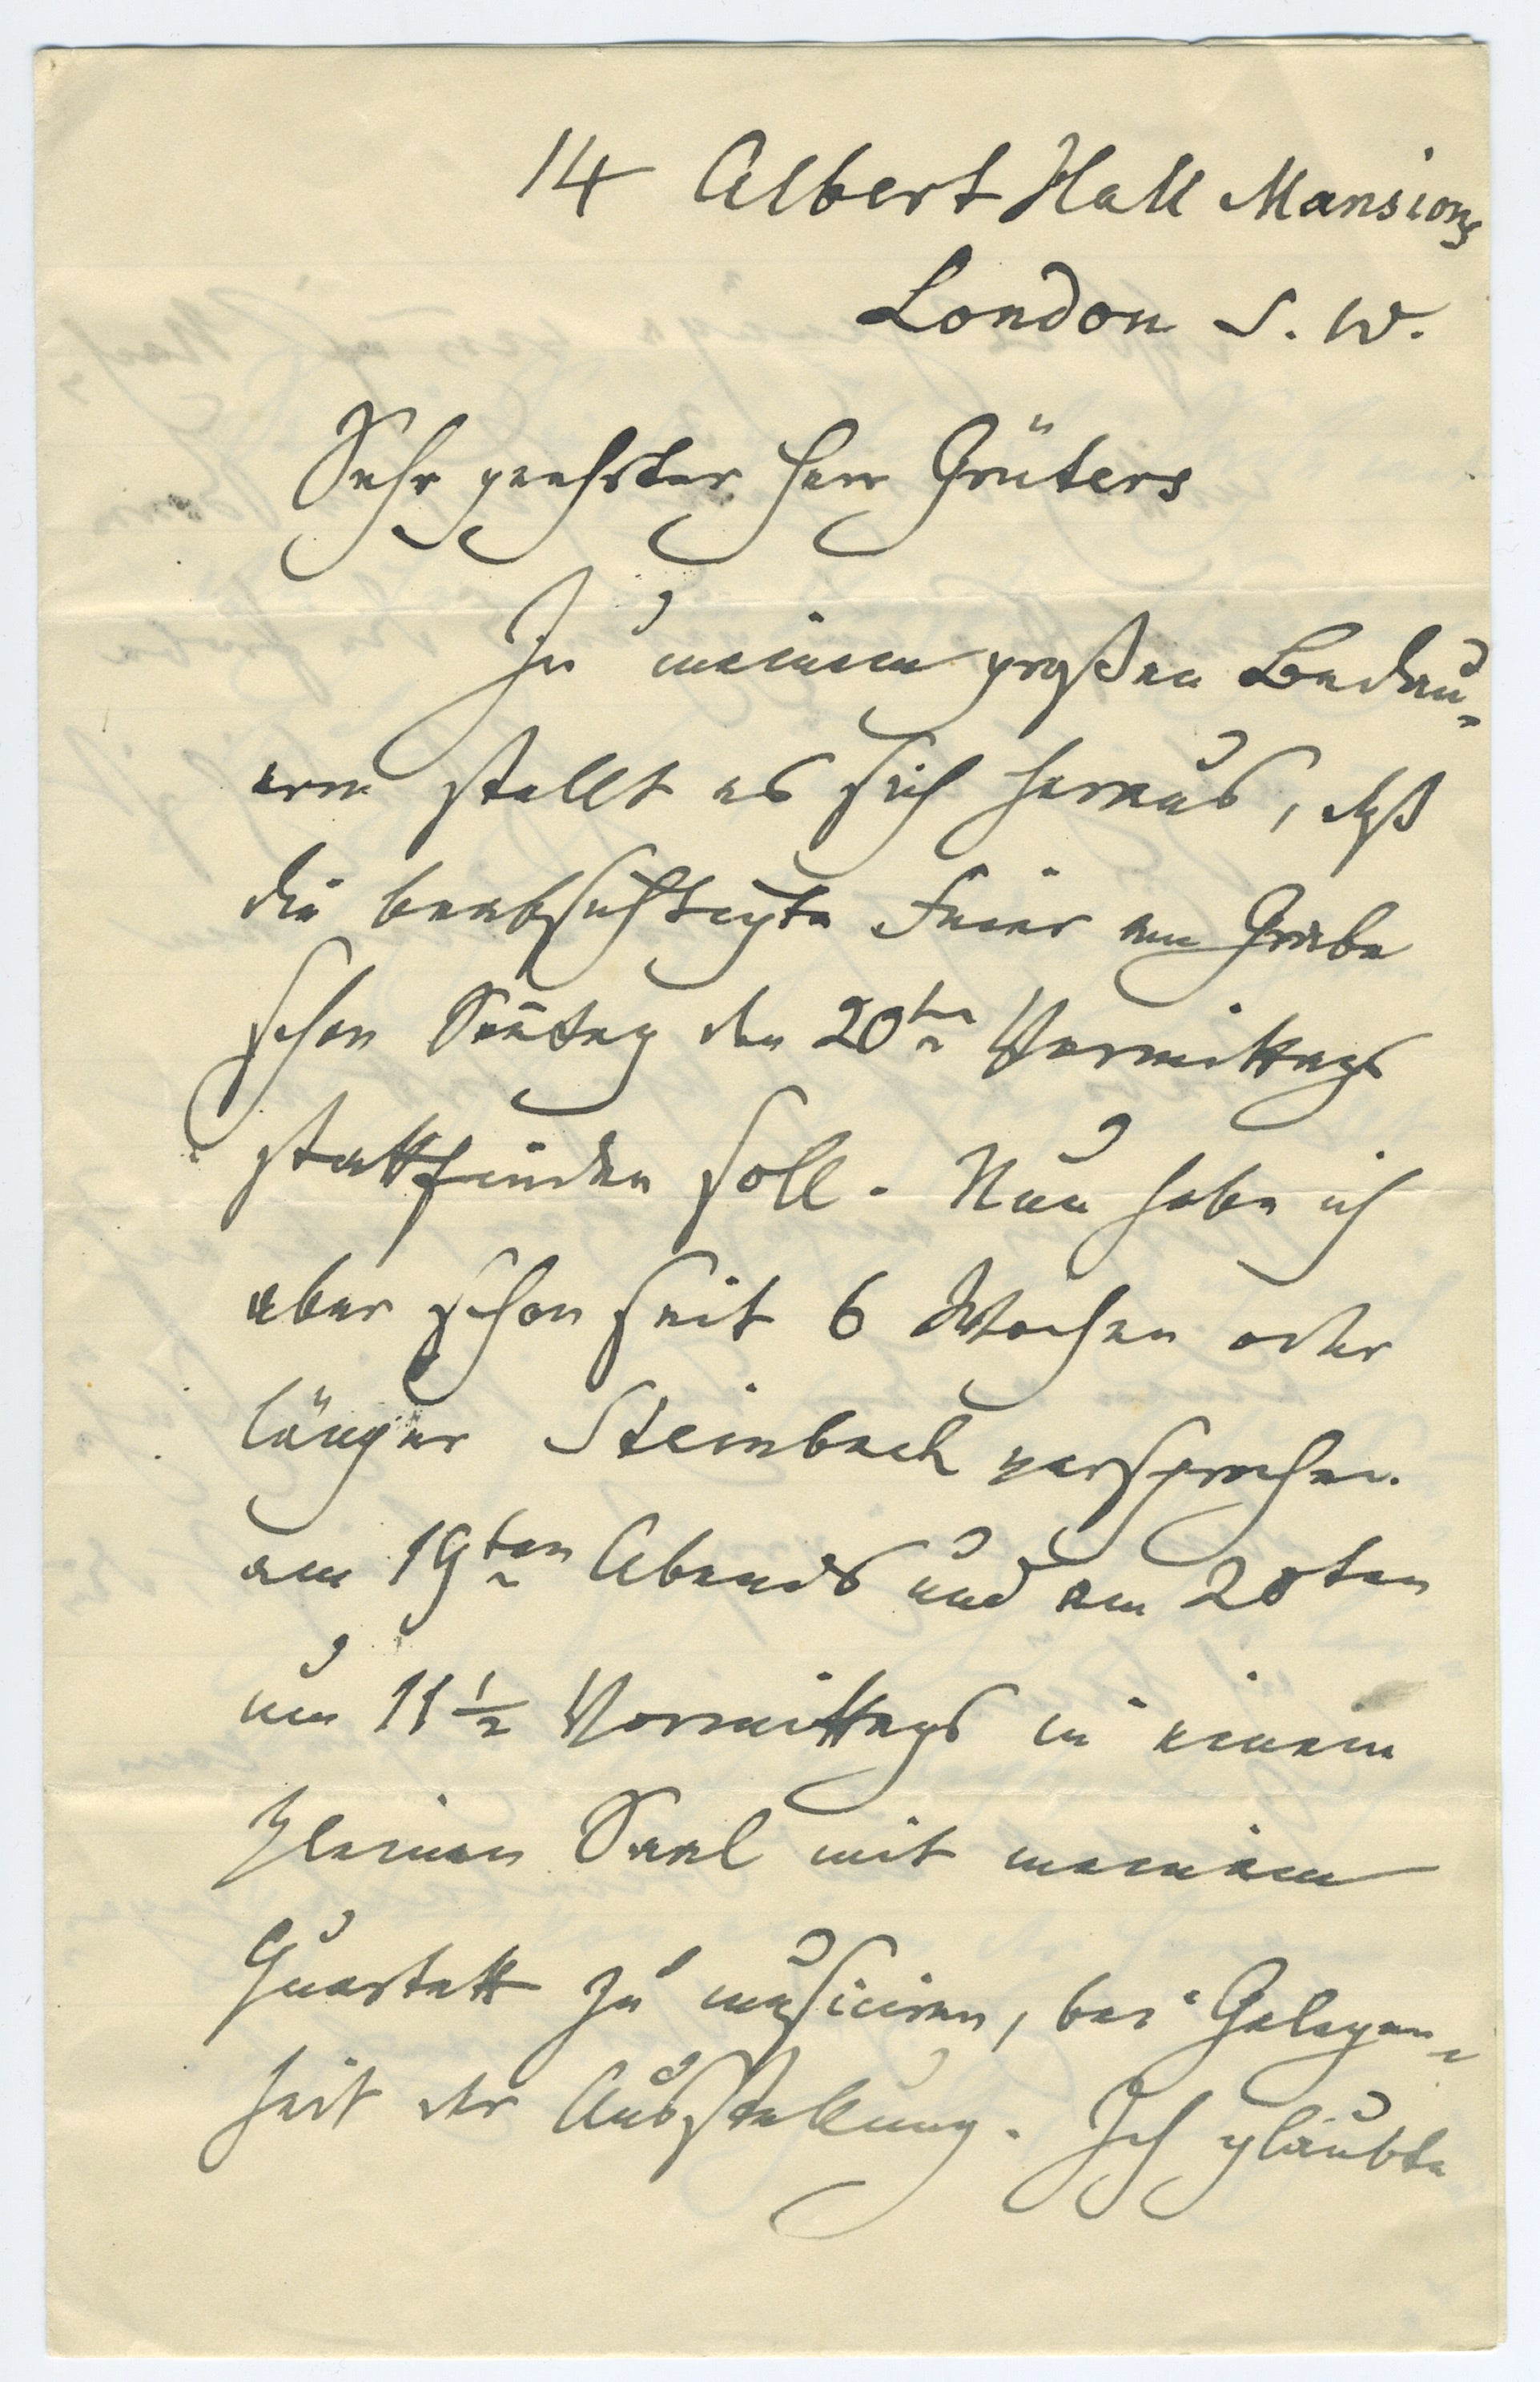 14 Albert Hall Mansions
London S. W.
Sehr geehrter Herr Grüters
Zu meinem großen Bedau=
ern stellt es sich heraus, daß
die beabsichtigte Feier am Grabe
schon Son̄tag den 20ten Vormittags
stattfinden soll. Nun habe ich
aber schon seit 6 Wochen oder
länger Steinbach versprochen
am 19ten Abends und am 20ten
um 11 1/2 Vormittags in einem
kleinen Saal mit meinem
Quartett zu musiciren, bei Gelegen=
heit der Ausstellung. Ich glaubte